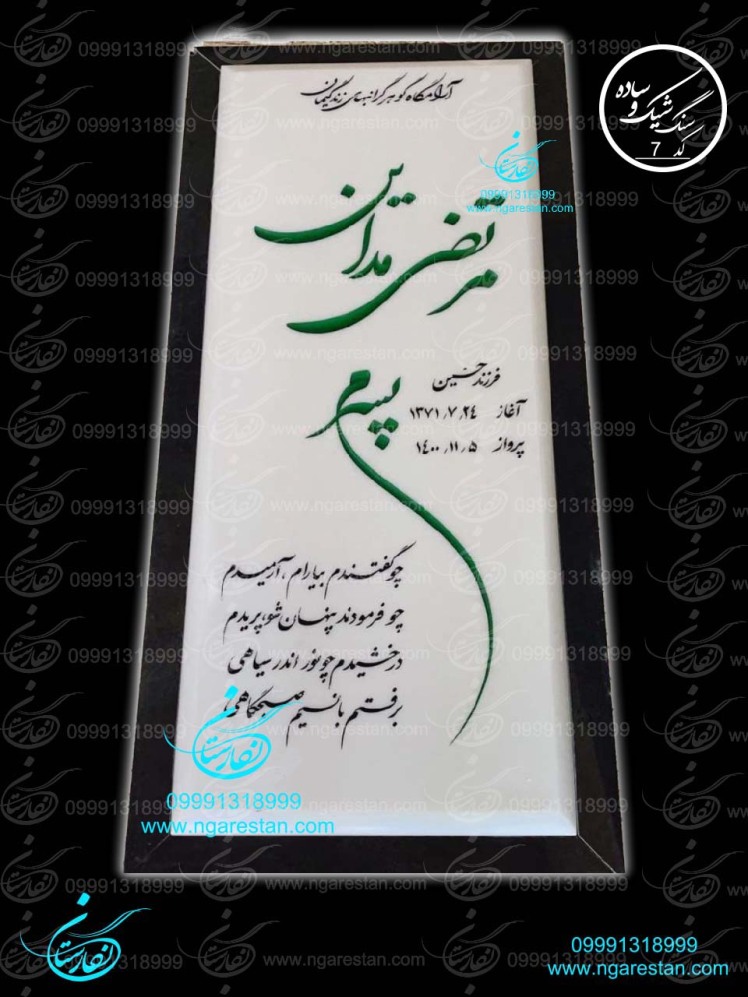 آرامگاه گوهر گرانبهای زندگیمان
سنگ شیک و ساده
کد 7
نگارستان
09991318999
www.ngarestan.com
مرتضی مداین
فرزند حسین
آغاز ۱۳۷۱٫۷٫۲۴
پرواز ۱۴۰۰٫۱۱٫۵
پسرم
چو گفتندم بیارام ، آرمیدم
چو فرمودند پنهان شو، پریدم
درخشیدم چو نور اندر سیاهی
برفتم با نسیم صبحگاهی
نگارستان
09991318999
www.ngarestan.com
نگارستان
09991318999
www.ngarestan.com